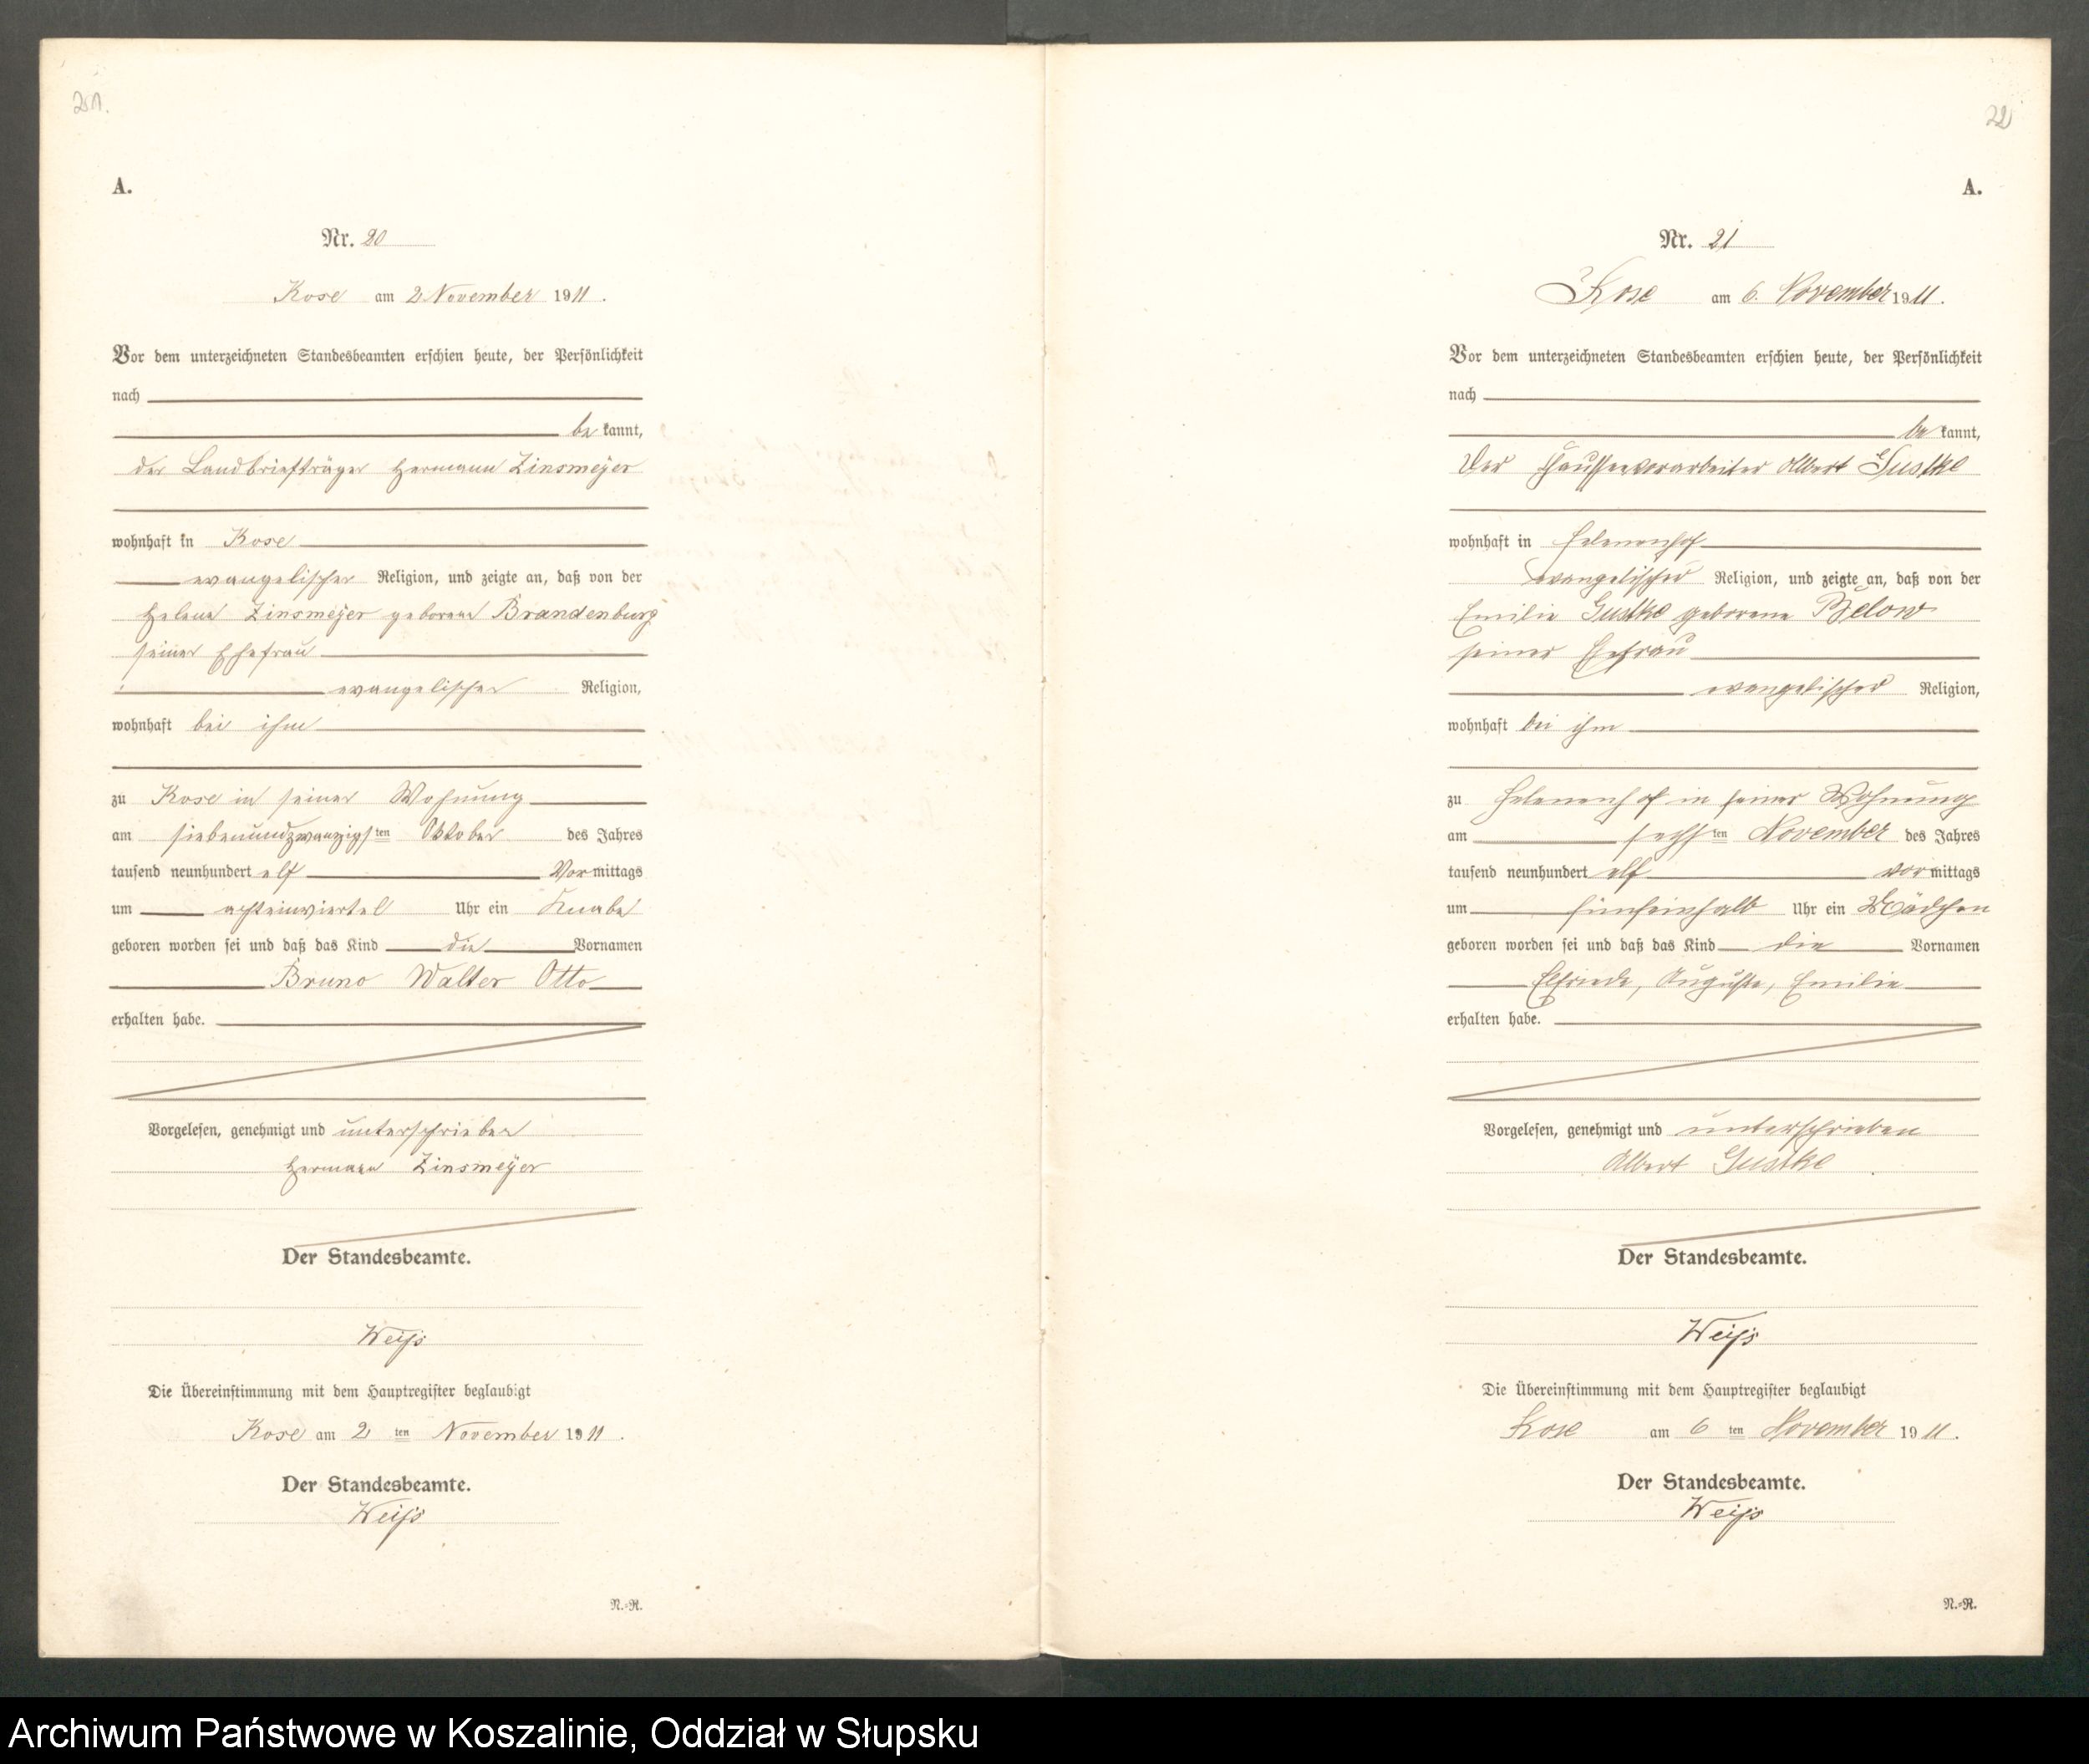 A.
Nr. 20
Kose am 2 November 1911.
Vor dem unterzeichneten Standesbeamten erschien heute, der Persönlichkeit
nach
be kannt,
der Landbriefträger Hermann Zinsmeÿer
wohnhaft in Kose
evangelischer Religion, und zeigte an, daß von der
Helene Zinsmeÿer geborene Brandenburg
seiner Ehefrau
evangelischer Religion,
wohnhaft bei ihm
zu Kose in seiner Wohnung
am siebenundzwanzigsten Oktober des Jahres
tausend neunhundert elf Vormittags
um achteinviertel Uhr ein Knabe
geboren worden sei und daß das Kind die Vornamen
Bruno Walter Otto
erhalten habe.
Vorgelesen, genehmigt und unterschrieben
Hermann Zinsmeÿer
Der Standesbeamte.
Weiß
Die Übereinstimmung mit dem Hauptregister beglaubigt
Kose am 2 ten November 1911.
Der Standesbeamte.
Weiß
N.=R.
22
A.
Nr. 21
Kose am 6. November 1911.
Vor dem unterzeichneten Standesbeamten erschien heute, der Persönlichkeit
nach
be kannt,
Der Chausseevorarbeiter Albert Gustke
wohnhaft in Helenenhof
evangelischer Religion, und zeigte an, daß von der
Emilie Gustke geborene Below
seiner Ehefrau
evangelischer Religion,
wohnhaft bei ihm
zu Helenenhof in seiner Wohnung
am sechsten November des Jahres
tausend neunhundert elf vormittags
um fünfeinhalb Uhr ein Mädchen
geboren worden sei und daß das Kind die Vornamen
Elfriede, Auguste, Emilie
erhalten habe.
Vorgelesen, genehmigt und unterschrieben
Albert Gustke
Der Standesbeamte.
Weiß
Die Übereinstimmung mit dem Hauptregister beglaubigt
Kose am 6 ten November 1911.
Der Standesbeamte.
Weiß
N.=R.
Archiwum Państwowe w Koszalinie, Oddział w Słupsku